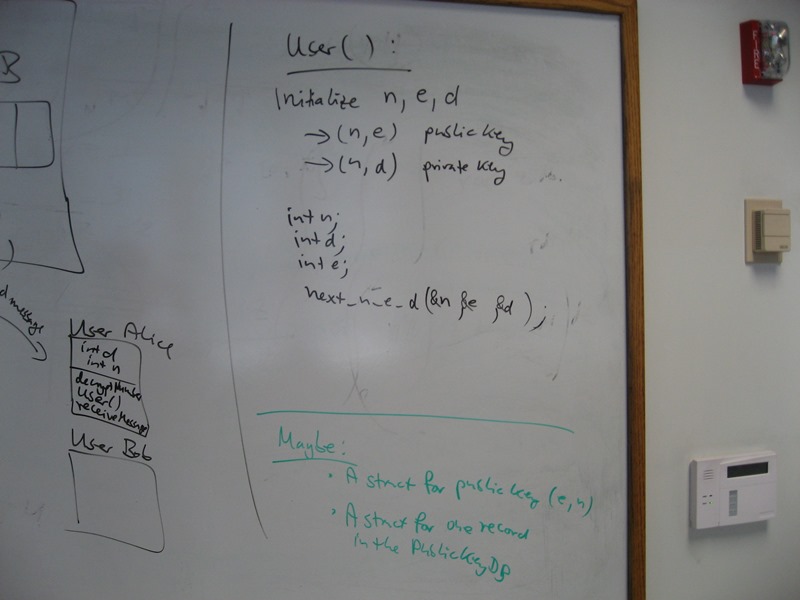 B
d message
User Alice
int d
int n
decryptNumber
User()
receiveMessage
User Bob
User() :
Initialize n, e, d
→(n, e) public key
→(n, d) private key
int n;
int d;
int e;
next_n_e_d(&n &e &d);
Maybe:
• A struct for public key (e, n)
• A struct for one record
in the PublicKeyDB
FIRE